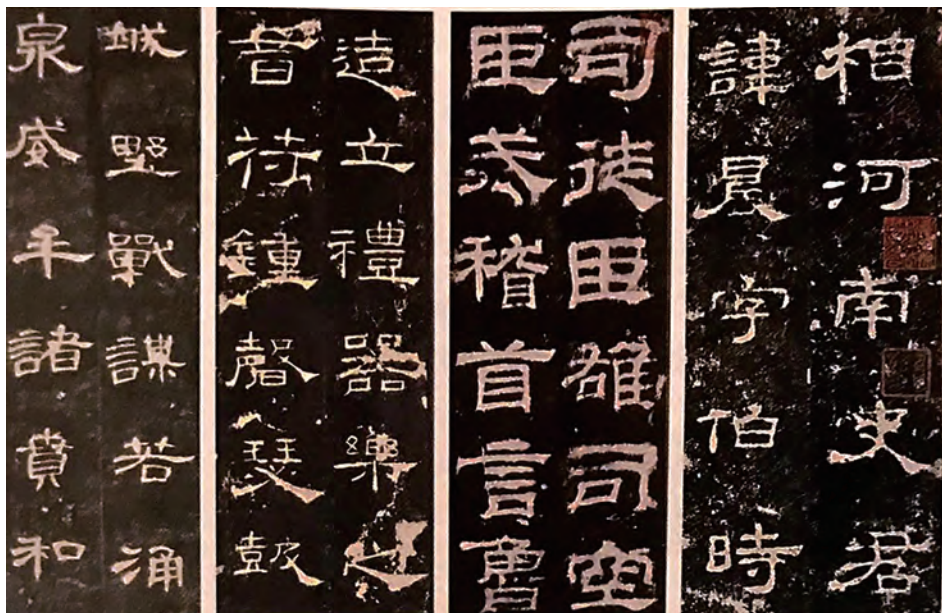 相河南史君
諱晨字伯時
司徒臣雄司空
臣戒稽首言魯
造立禮器樂之
音符鍾磬瑟鼓
城野戰謀若涌
泉威牟諸賁和